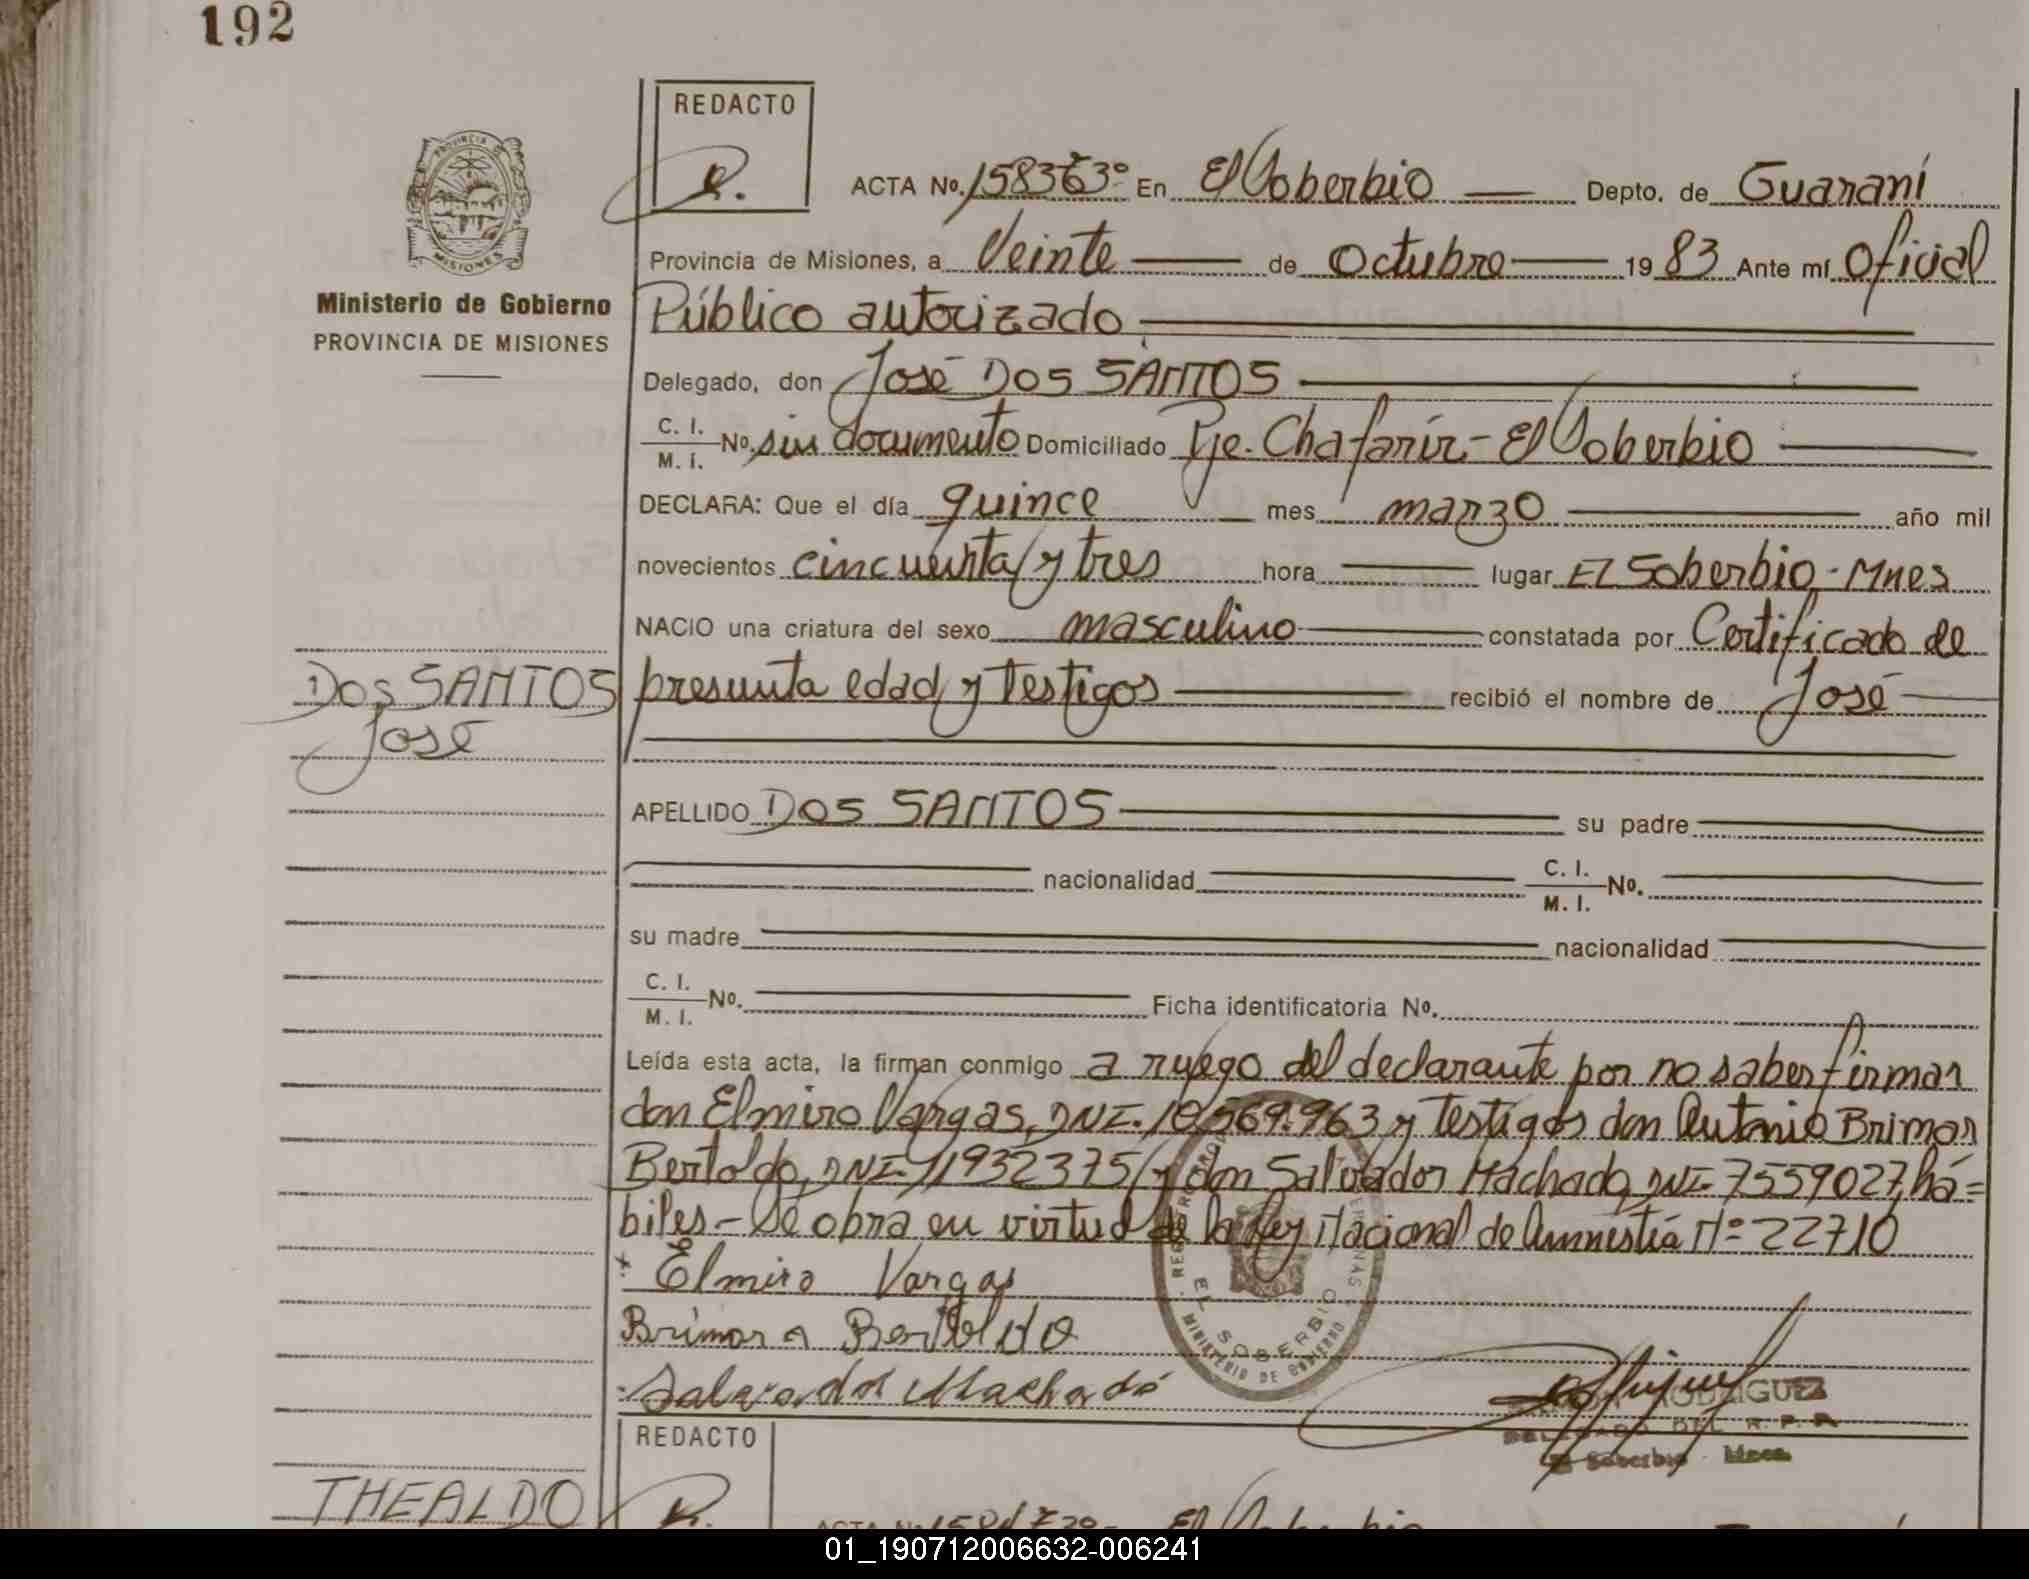 192
REDACTO
R.
ACTA No. 1583 T 63º En El Soberbio Depto. de Guaraní
Provincia de Misiones, a Veinte de Octubre 1983 Ante mí Oficial
Público autorizado
Delegado, don José DOS SANTOS
C. I. / M. I. No. sin documento Domiciliado Pje. Chafariz - El Soberbio
DECLARA: Que el día quince mes marzo año mil
novecientos cincuenta y tres hora lugar El Soberbio - Mnes
NACIO una criatura del sexo masculino constatada por Certificado de
presunta edad y testigos recibió el nombre de José
APELLIDO DOS SANTOS su padre
nacionalidad C. I. / M. I. No.
su madre nacionalidad
C. I. / M. I. No. Ficha identificatoria No.
Leída esta acta, la firman conmigo a ruego del declarante por no saber firmar
don Elmiro Vargas, DNI. 10.569.963 y testigos don Antonio Brimar
Bertoldo, DNI- 11932375 y don Salvador Machado, DNI- 7559027, há=
biles.- Se obra en virtud de la Ley Nacional de Amnestiá Nº 22710
Elmiro Vargas
Brimar a Bertoldo
Salvador Machado
REGISTRO PROV
EL SOBERBIO
MINISTERIO DE GOBIERNO
RODRIGUEZ
DELEGADO DEL R. P. P.
El Soberbio - Mnes.
PROVINCIA DE MISIONES
Ministerio de Gobierno
PROVINCIA DE MISIONES
DOS SANTOS
José
THEALDO
REDACTO
R.
ACTA No. El Soberbio
01_190712006632-006241